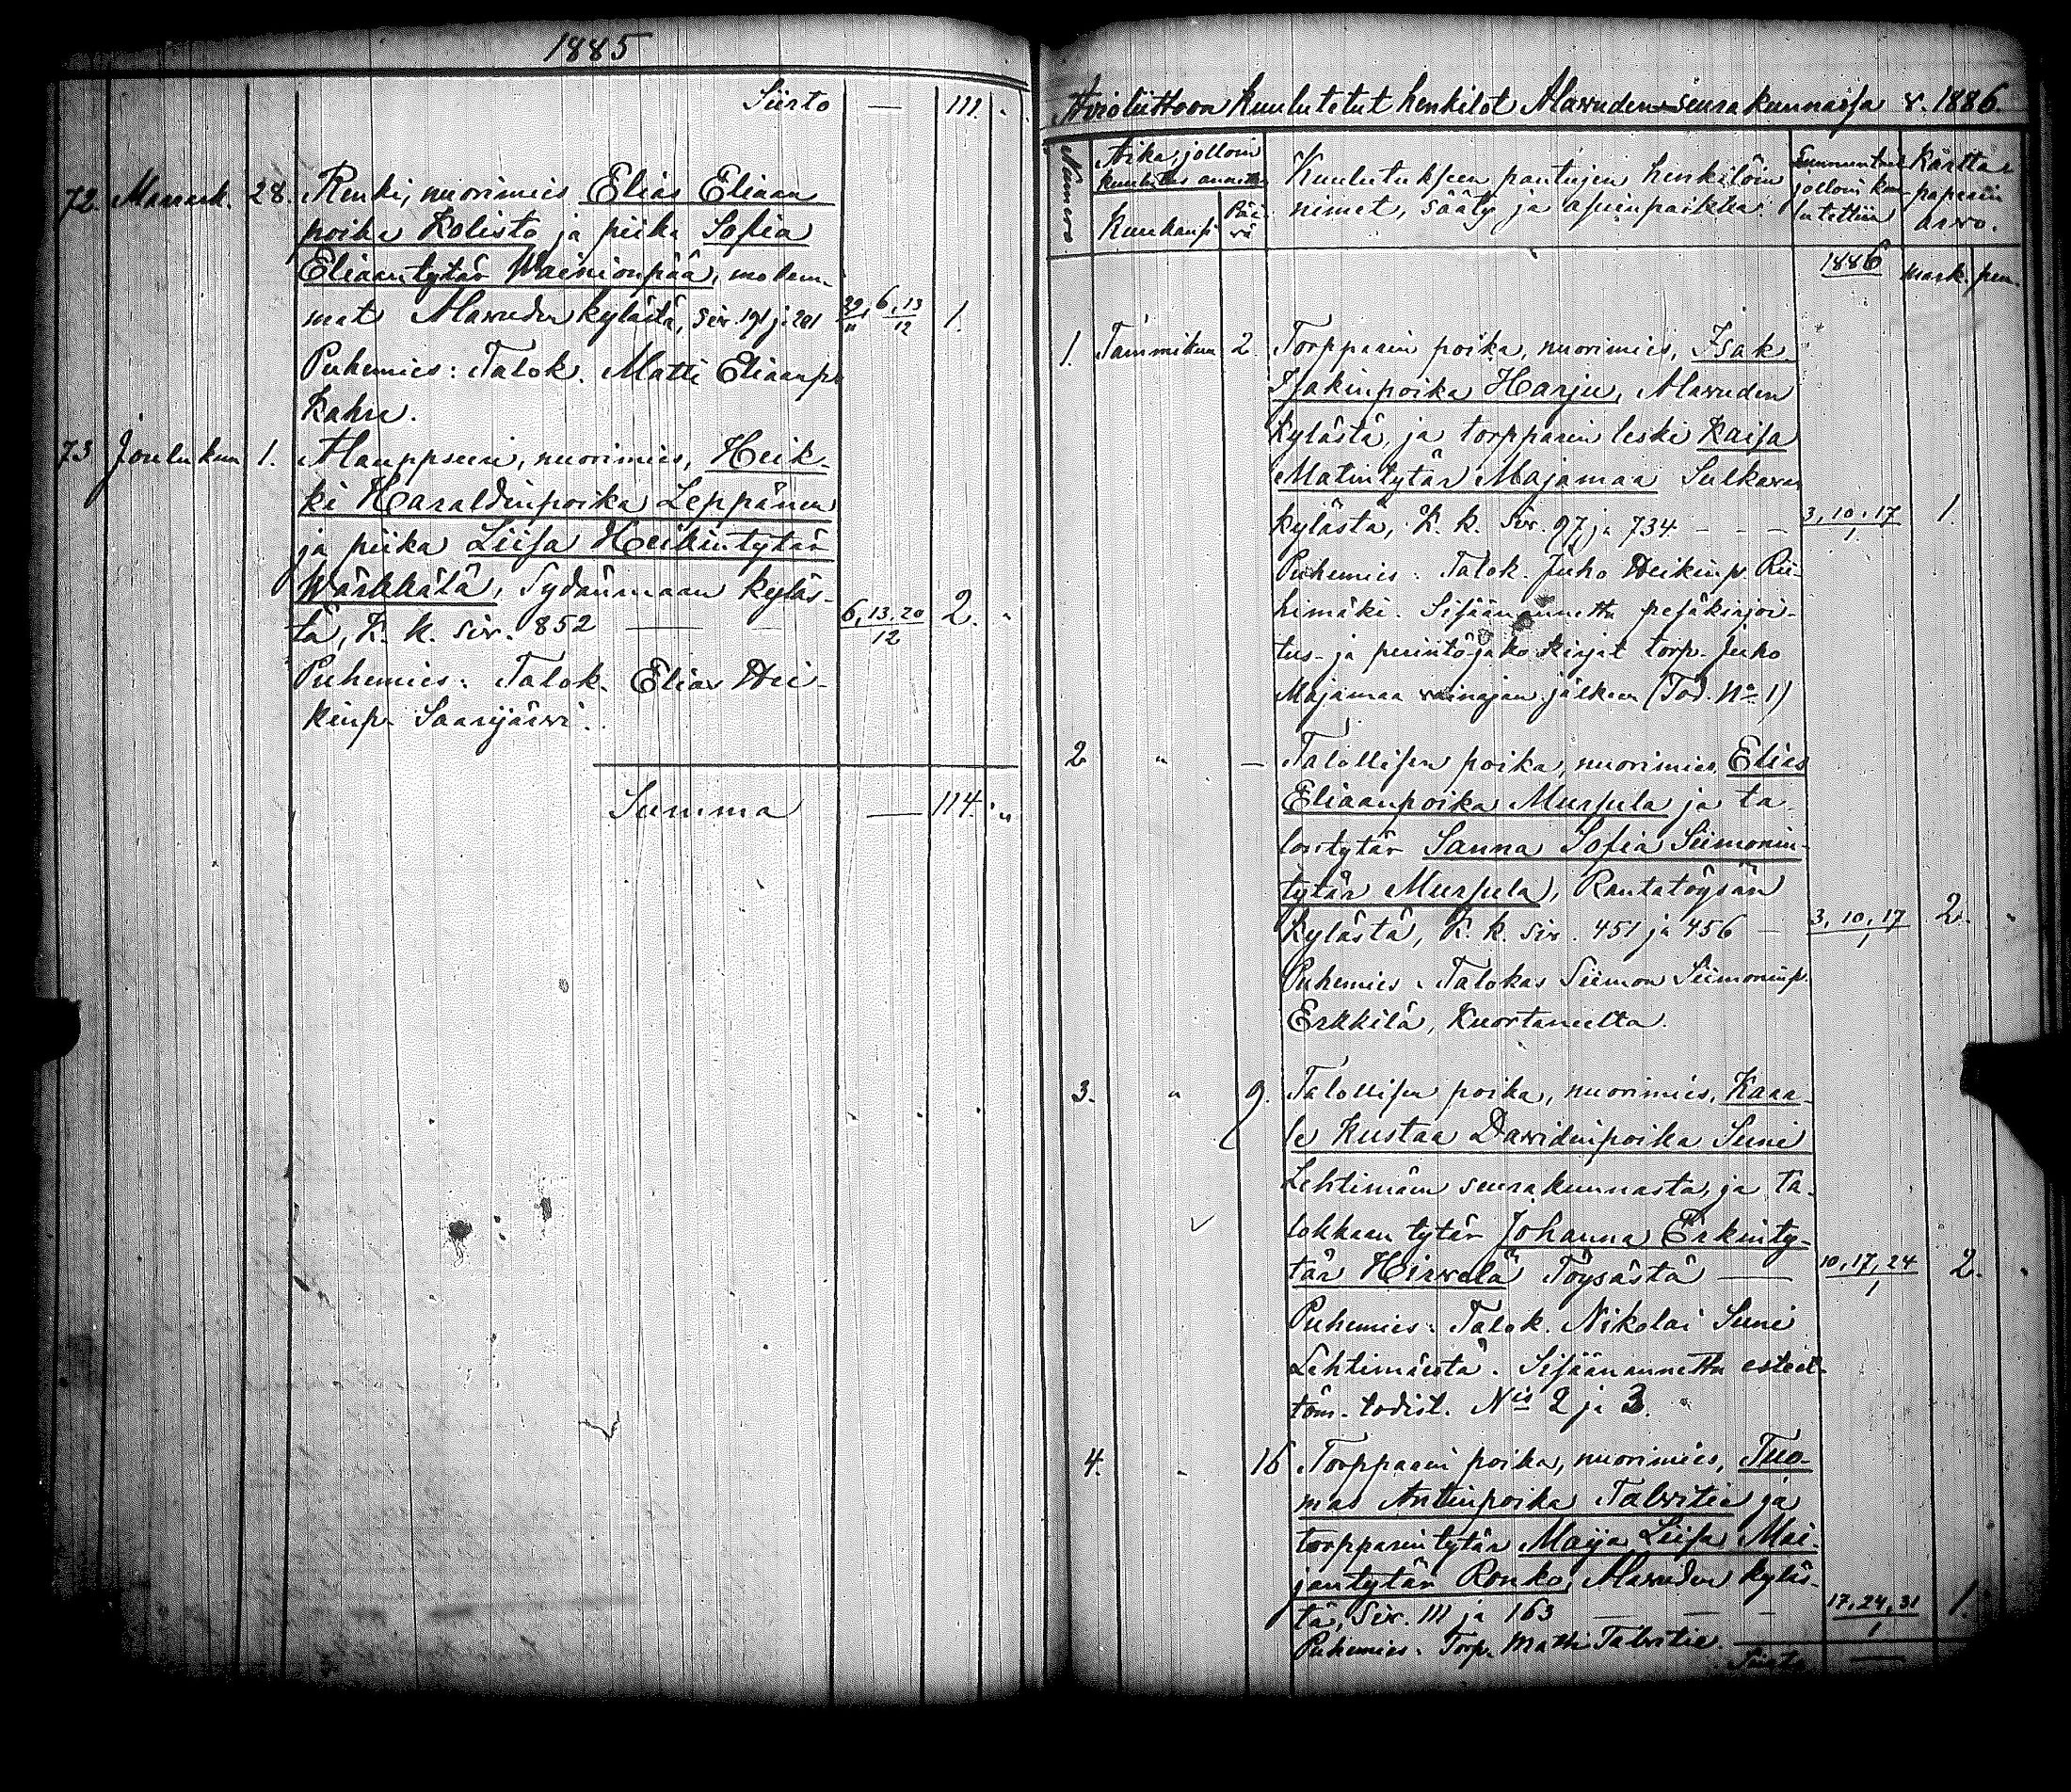 1885
Siirto — 111. "
72. Marrask. 28. Renki, nuorimies Elias Eliaan
poika Kolisto ja piika Sofia
Eliaantytär Wainionpää, molem-
mat Alawuden kylästä, siv. 191 ja 201 29/11, 6, 13/12 1.
Puhemies: Talok. Matti Eliaanp.
Kahra.
73 Joulukuu 1. Alauppseeri, nuorimies, Heik-
ki Haraldinpoika Leppänen
ja piika Liisa Heikintytär
Wärkkälä, Sydänmaan kyläs-
tä, K. k. siv. 852 — — 6, 13, 20/12 2. "
Puhemies: Talok. Elias Hei-
kinp. Saarijärvi.
Summa — 114. "
Avioliittoon kuulutetut henkilöt Alawuden seurakunnassa v. 1886.
Numero. Aika, jolloin kuulutus annettu
Kuukausi Päi-vä
Kuulutukseen pantujen henkilöin
nimet, sääty ja asuinpaikka.
Sunnuntait jolloin kuulutettiin
Kartta paperin arvo.
1886 Mark. pen.
1. Tammikuu 2. Torpparin poika, nuorimies, Isak
Isakinpoika Harju, Alawuden
kylästä, ja torpparin leski Kaisa
Matintytär Majamaa Sulkavan
kylästä, K. k. siv. 97 ja 734 — — — 3, 10, 17/1 1.
Puhemies: Talok. Juho Heikinp. Rii-
himäki. Sisäänannettu pesäkirjoi-
tus- ja perintöjako kirjat torp. Juho
Majamaa vainajan jälkeen (Tod. No 1)
2 " — Talollisen poika, nuorimies, Elias
Eliaanpoika Mursula ja ta-
lontytär Sanna Sofia Siimonin-
tytär Mursula, Rantatöysän
kylästä, K. k. siv. 451 ja 456 — 3, 10, 17/1 2. "
Puhemies: Talokas Siimon Siimoninp.
Erkkilä, Kuortaneelta.
3. " 9. Talollisen poika, nuorimies, Kaar-
le Kustaa Davidinpoika Suni
Lehtimäen seurakunnasta, ja ta-
lokkaan tytär Johanna Erkinty-
tär Hirvelä Töysästä — 10, 17, 24/1 2. "
Puhemies: Talok. Nikolai Suni
Lehtimäeltä. Sisäänannettu esteet-
töm. todist. Nis 2 ja 3.
4. " 16 Torpparin poika, nuorimies, Tuo-
mas Antinpoika Talvitie ja
torpparintytär Maija Liisa Mai-
jantytär Ronko, Alawuden kyläs-
tä, siv. 111 ja 163 — — — 17, 24, 31/1 1.
Puhemies: Torp. Matti Talvitie.
Siirto —